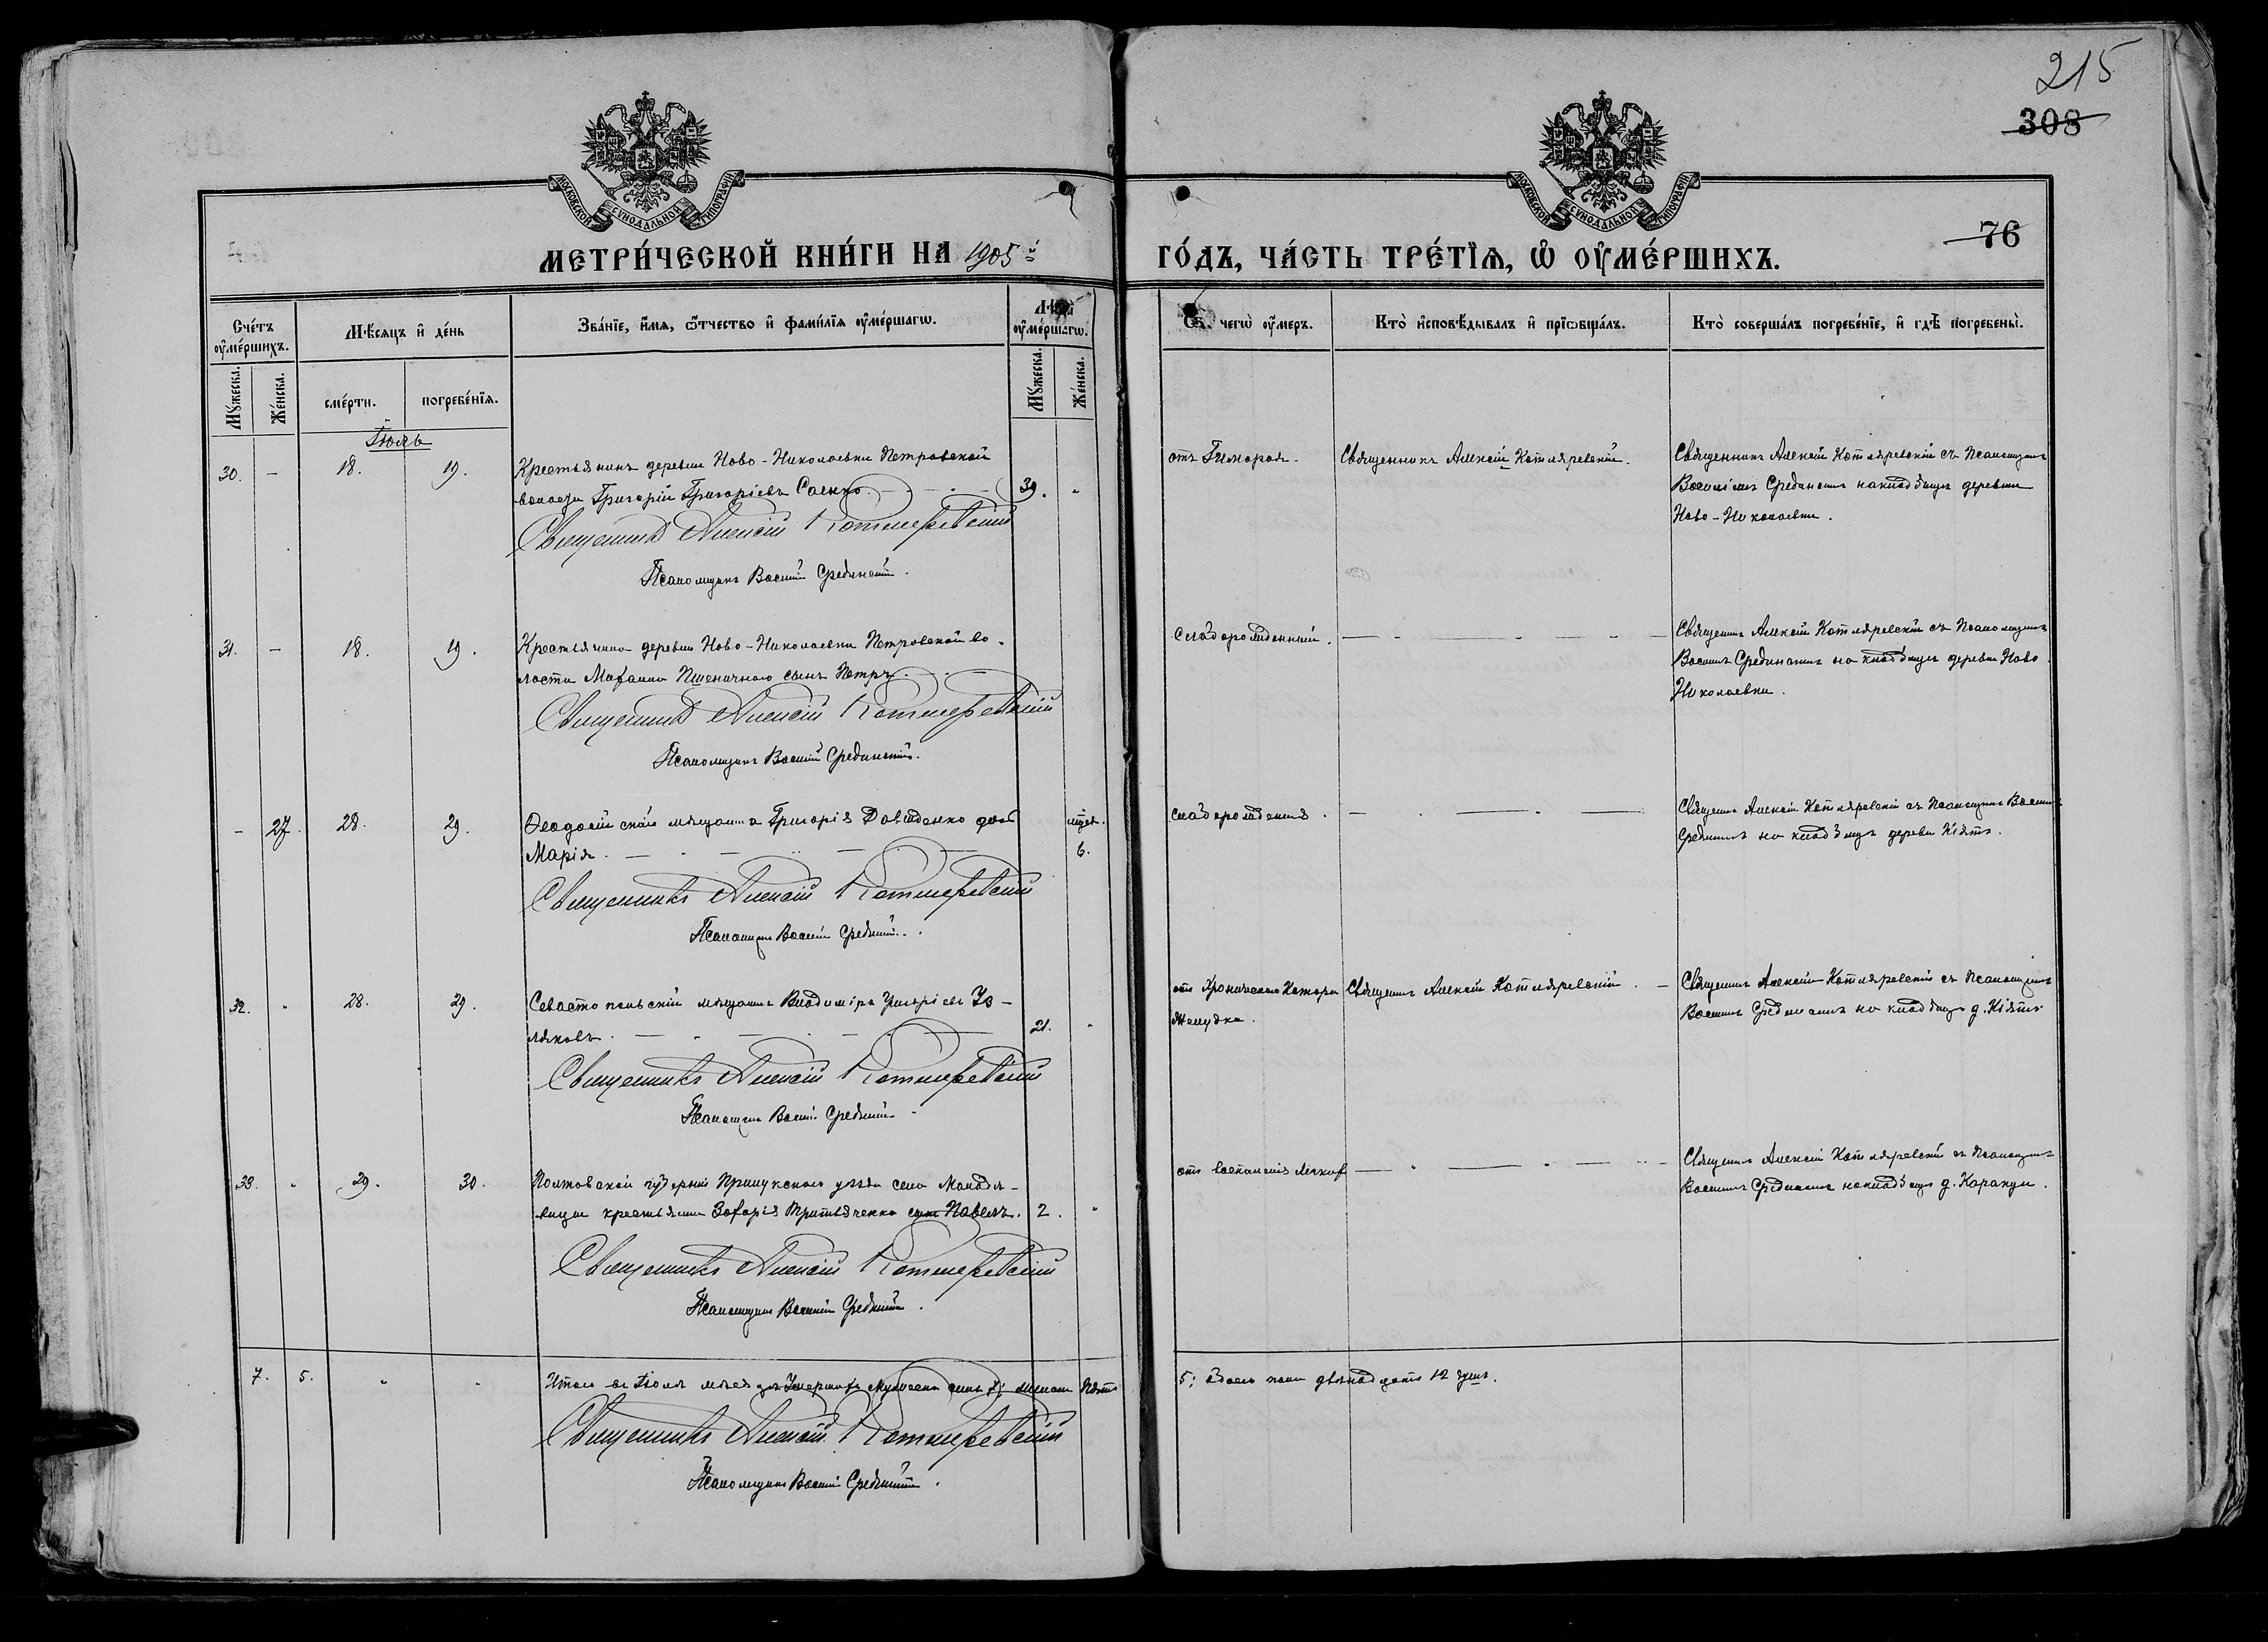 215
308
76
МОСКОВСКОЙ СѴНОДАЛЬНОЙ ТИПОГРАФІИ
МОСКОВСКОЙ СѴНОДАЛЬНОЙ ТИПОГРАФІИ
МЕТРИ́ЧЕСКОЙ КНИ́ГИ НА 1905й
ГО́ДЪ, ЧА́СТЬ ТРЕ́ТЇѦ, Ѡ҆ ОУ҆МЕ́РШИХЪ.
Сче́тъ оу҆ме́ршихъ.
Мѣ́сяцъ и҆ де́нь
Зва́нїе, и҆́мя, ѻ҆́тчество и҆ фами́лїя оу҆ме́ршагѡ.
Лѣта оу҆ме́ршагѡ.
чегѡ̀ оу҆́меръ.
Кто̀ и҆сповѣ́дывалъ и҆ прїѡбща́лъ.
Кто̀ соверша́лъ погребе́нїе, и҆ гдѣ̀ погребены̀.
Мꙋ́жеска.
Же́нска.
сме́рти.
погребе́нїя.
Мꙋ́жеска.
Же́нска.
Іюль
30. — 18. 19. Крестьянинъ деревни Ново-Николаевки Петровской
волости Григорій Григоріевъ Саенко. 39. "
Священникъ Алексій Котляревскій
Псаломщикъ Василій Срединскій.
отъ Священникъ Алексій Котляревскій.
Священникъ Алексій Котляревскій съ Псаломщикомъ
Василіемъ Срединскимъ на кладбищѣ деревни
Ново-Николаевки.
31. — 18. 19. Крестьянина деревни Ново-Николаевки Петровской во-
лости Пшеничнаго сынъ Петръ.
Священникъ Алексій Котляревскій
Псаломщикъ Василій Срединскій.
Слаборожденный.
Священникъ Алексій Котляревскій съ Псаломщикомъ
Василіемъ Срединскимъ на кладбищѣ деревни Ново
Николаевки.
— 27. 28. 29. Ѳеодосійскаго мѣщанина Григорія Давиденко дочь
Марія. 6.
Священникъ Алексій Котляревскій
Псаломщикъ Василій Срединскій.
слаборожденія.
Священникъ Алексій Котляревскій съ Псаломщикомъ Василіемъ
Срединскимъ на кладбищѣ деревни Кіятъ.
32. " 28. 29. Севастопольскій мѣщанинъ Владиміръ Григоріевъ Из-
ляковъ. 21. "
Священникъ Алексій Котляревскій
Псаломщикъ Василій Срединскій.
отъ Хроническаго Катара Священникъ Алексій Котляревскій.
Желудка.
Священникъ Алексій Котляревскій съ Псаломщикомъ
Василіемъ Срединскимъ на кладбищѣ д. Кіятъ
33. " 29. 30. Полтавской губерніи Прилукскаго уѣзда села
крестьянина Захарія сынъ Павелъ. 2. "
Священникъ Алексій Котляревскій
Псаломщикъ Василій Срединскій.
отъ воспаленія легкихъ
Священникъ Алексій Котляревскій съ Псаломщикомъ
Василіемъ Срединскимъ на кладбищѣ д.
7. 5. " " Итого въ Іюлѣ мѣсяцѣ Умершихъ Мужеска семь 7; женска пять
5; обоего пола двѣнадцать 12 душъ.
Священникъ Алексій Котляревскій
Псаломщикъ Василій Срединскій.